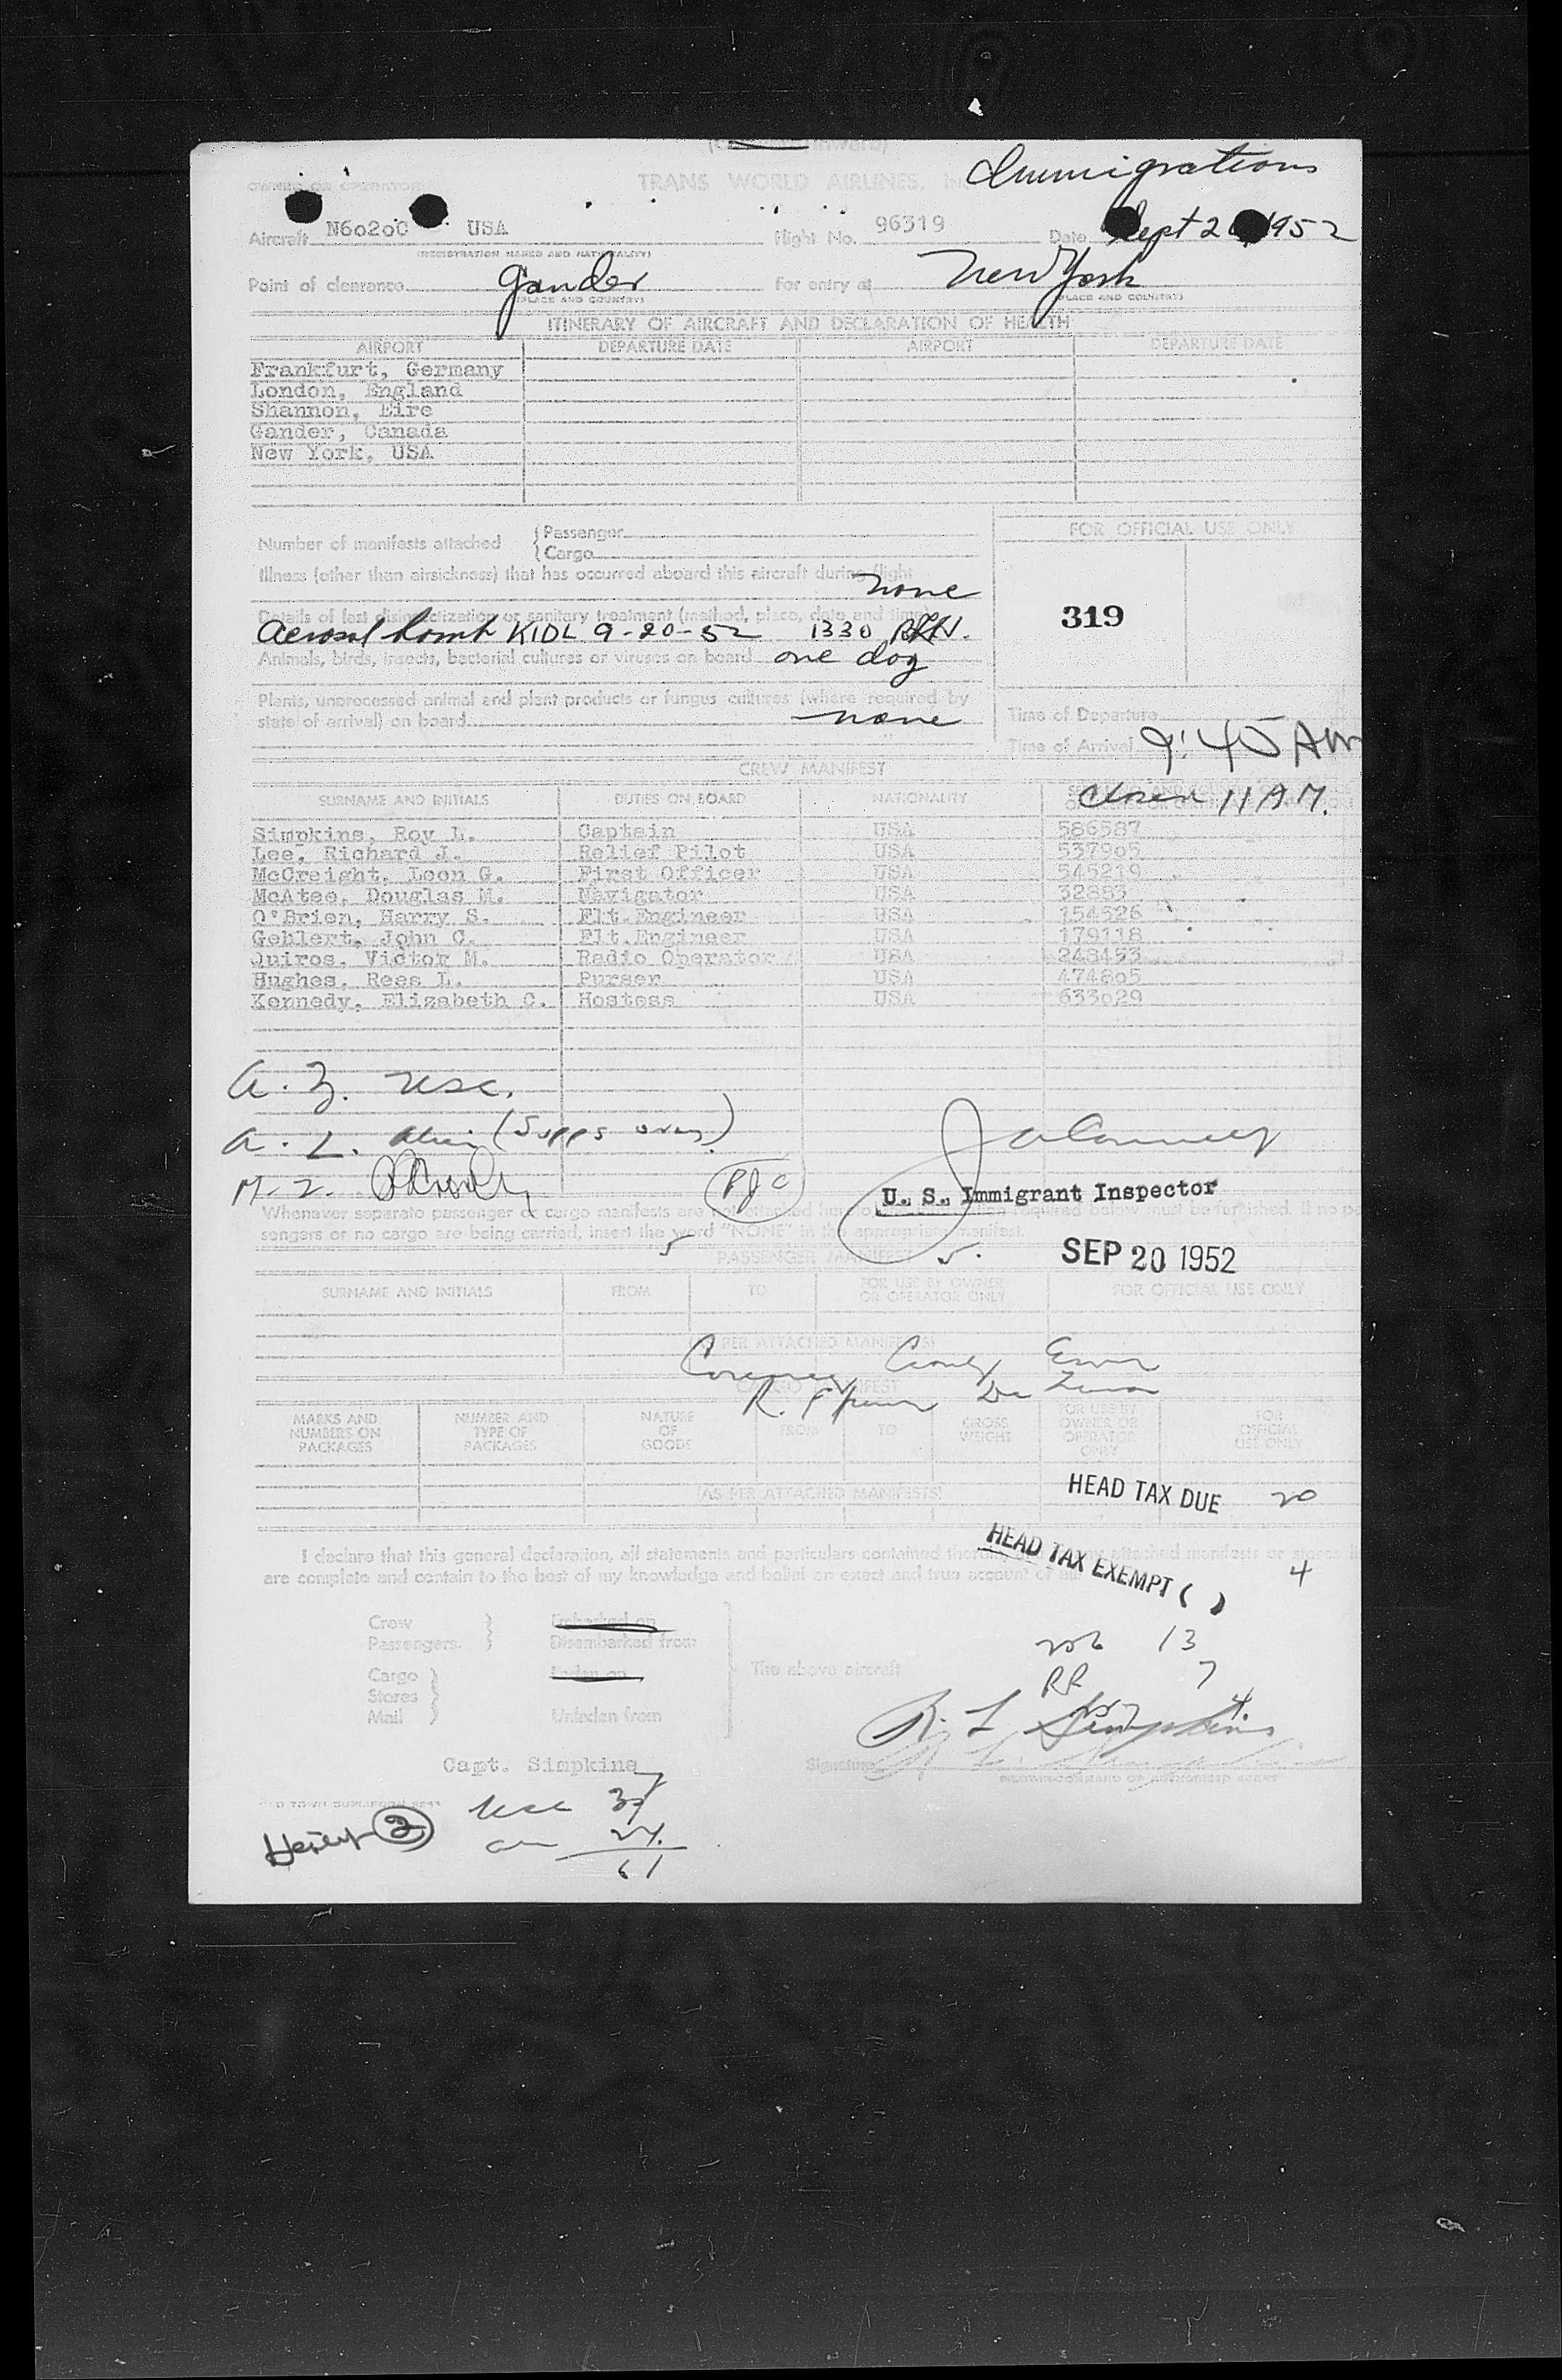 Immigrations
OWNER OR OPERATOR TRANS WORLD AIRLINES,
Aircraft N6020C USA Flight No. 96319 Date Sept 20 1952
(REGISTRATION MARKS AND NATIONALITY)
Point of clearance Gander For entry at New York
(PLACE AND COUNTRY) (PLACE AND COUNTRY)
ITINERARY OF AIRCRAFT AND DECLARATION OF HEALTH
AIRPORT DEPARTURE DATE AIRPORT DEPARTURE DATE
Frankfurt, Germany
London, England
Shannon, Eire
Gander, Canada
New York, USA
Number of manifests attached { Passenger
{ Cargo
FOR OFFICIAL USE ONLY
Illness (other than airsickness) that has occurred aboard this aircraft during flight
none
Details of last disinsectization or sanitary treatment (method, place, date and time)
319
Aerosol bomb KIDL 9-20-52 1330
Animals, birds, insects, bacterial cultures or viruses on board one dog
Plants, unprocessed animal and plant products or fungus cultures (where required by
state of arrival) on board none
Time of Departure
Time of Arrival 9:45 AM
CREW MANIFEST
SURNAME AND INITIALS DUTIES ON BOARD NATIONALITY
11 A.M.
Simpkins, Roy L. Captain USA 586587
Lee, Richard J. Relief Pilot USA 537905
McCreight, Leon G. First Officer USA 545219
McAtee, Douglas M. Navigator USA 32883
O'Brien, Harry S. Flt.Engineer USA 154526
Gehlert, John C. Flt.Engineer USA 179118
Quiros, Victor M. Radio Operator USA 248453
Hughes, Rees L. Purser USA 474805
Kennedy, Elizabeth C. Hostess USA 633029
U. S. Immigrant Inspector
Whenever separate passenger or cargo manifests are not attached below must be furnished. If no
sengers or no cargo are being carried, insert the word "NONE" in the appropriate manifest.
SEP 20 1952
PASSENGER MANIFEST
SURNAME AND INITIALS FROM TO FOR USE BY OWNER OR OPERATOR ONLY FOR OFFICIAL USE ONLY
PER ATTACHED MANIFESTS
CARGO MANIFEST
MARKS AND NUMBERS ON PACKAGES NUMBER AND TYPE OF PACKAGES NATURE OF GOODS FROM TO GROSS WEIGHT FOR USE BY OWNER OR OPERATOR ONLY FOR OFFICIAL USE ONLY
HEAD TAX DUE 20
(AS PER ATTACHED MANIFESTS)
HEAD TAX EXEMPT ( ) 4
I declare that this general declaration, all statements and particulars contained attached manifests or
are complete and contain to the best of my knowledge and belief an exact and true account of
Crew } Embarked on
Passengers } Disembarked from
13
Cargo } Laden on
The above aircraft
RR 7
Stores }
Mail } Unladen from
R. L. Simpkins
Capt. Simpkins Signature
37
24
61